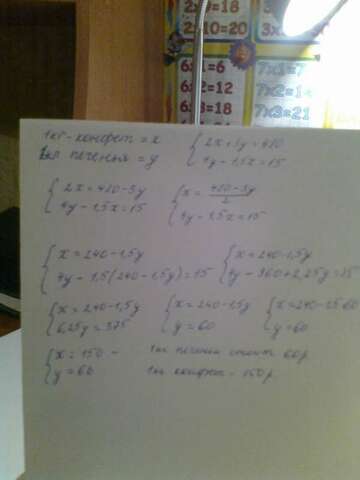 2x9=18
2x10=20
3x
3x
6x1=6
6x2=12
6x3=18
7x1=7
7x2=14
7x3=21
1кг - конфет = x
1кг печенья = y
{ 2x+3y=480
4y-1,5x=15
{ 2x=480-3y
4y-1,5x=15
{ x=480-3y/2
4y-1,5x=15
{ x=240-1,5y
4y-1,5(240-1,5y)=15
{ x=240-1,5y
4y-360+2,25y=15
{ x=240-1,5y
6,25y=375
{ x=240-1,5y
y=60
{ x=240-1,5·60
y=60
{ x=150 -
y=60
1кг печенья стоит 60р
1кг конфет - 150р.